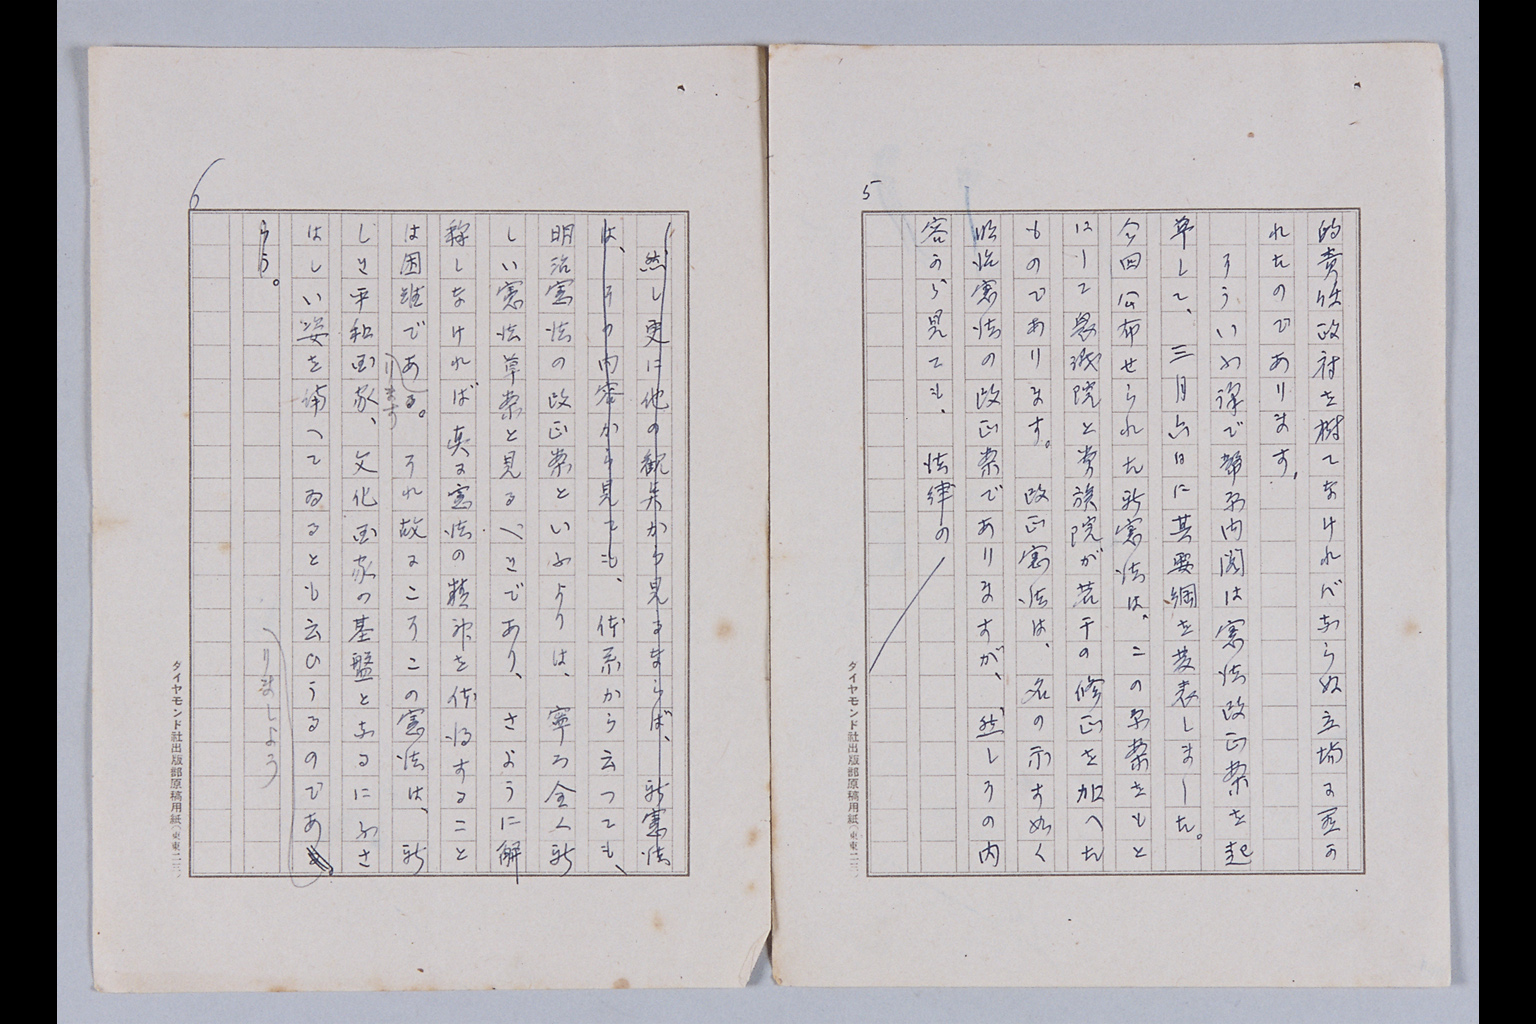 5
的責任政府を樹てなければならぬ立場に至つ
れたのであります。
そういふ譯で幣原内閣は憲法改正案を起
草して、三月六日に其要綱を発表しました。
今回公布せられた新憲法は、この原案をもと
にして衆議院と貴族院が若干の修正を加へた
ものであります。改正憲法は、名の示す如く
明治憲法の改正案でありますが、然しその内
容から見ても、法律の
ダイヤモンド社出版部原稿用紙
6
然し更に他の観点から見るならば、新憲法
は、その内容から見ても、体系から云つても、
明治憲法の改正案といふよりは、寧ろ全く新
しい憲法草案と見るべきであり、さように解
釈しなければ真に憲法の精神を体得すること
は困難である。それ故にこそこの憲法は、新
ります
しき平和国家、文化国家の基盤となるにふさ
はしい姿を備へてゐるとも云ひうるのであ
らう。
りましよう
ダイヤモンド社出版部原稿用紙